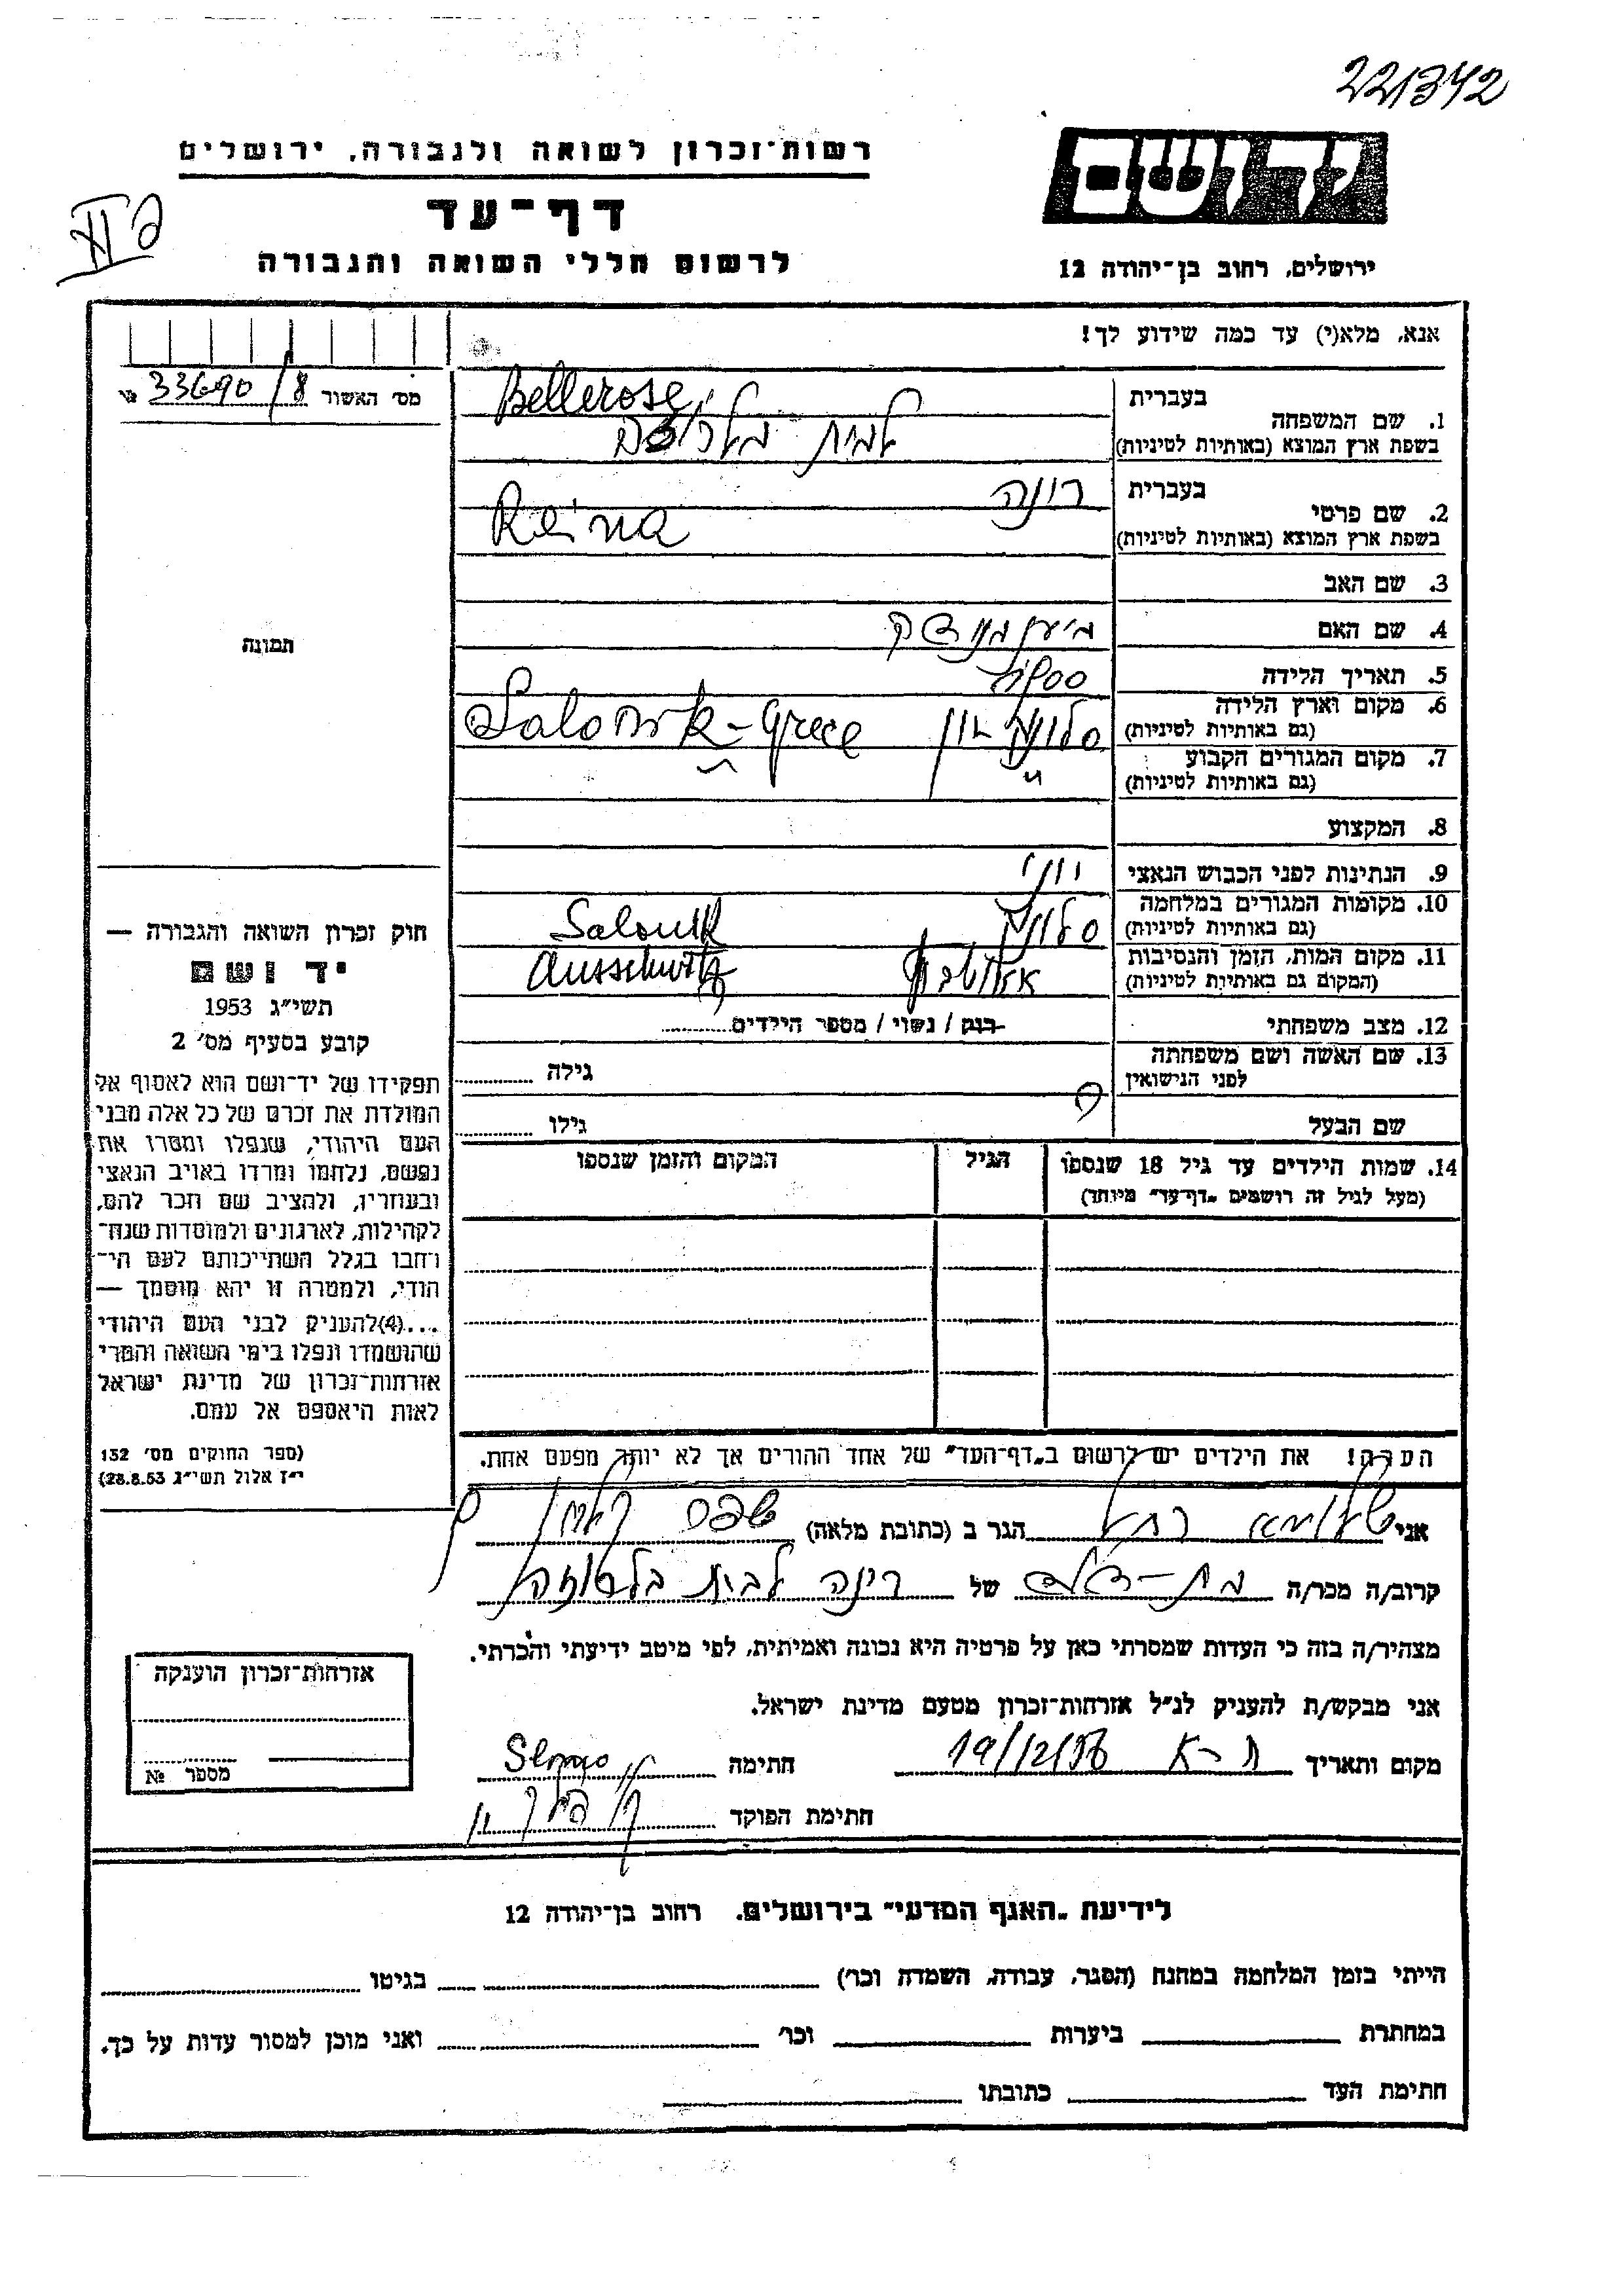 221342
יד ושם
רשות-זכרון לשואה ולגבורה, ירושלים
דף-עד
לרשום חללי השואה והגבורה
ירושלים, רחוב בן-יהודה 12
אנא, מלא(י) עד כמה שידוע לך!
מס׳ האשור 33690/8 №
1. שם המשפחה
בעברית
בשפת ארץ המוצא (באותיות לטיניות)
Bellerose
לבית בלרוזה
2. שם פרטי
בעברית רינה
בשפת ארץ המוצא (באותיות לטיניות) Reina
3. שם האב
4. שם האם
5. תאריך הלידה
6. מקום וארץ הלידה
(גם באותיות לטיניות)
סלוניקי יון Salonik - Grece
7. מקום המגורים הקבוע
(גם באותיות לטיניות) "
8. המקצוע
9. הנתינות לפני הכבוש הנאצי יוני
10. מקומות המגורים במלחמה
(גם באותיות לטיניות) סלוניקי Salonik
11. מקום המות, הזמן והנסיבות
(המקום גם באותיות לטיניות) אאושוויץ Ausschwitz
12. מצב משפחתי רווק / נשוי / מספר הילדים
13. שם האשה ושם משפחתה
לפני הנישואין גילה
שם הבעל גילו
14. שמות הילדים עד גיל 18 שנספו
(מעל לגיל זה רושמים „דף-עד" מיוחד)
הגיל
המקום והזמן שנספו
הערה! את הילדים יש לרשום ב„דף-העד" של אחד ההורים אך לא יותר מפעם אחת.
תמונה
חוק זכרון השואה והגבורה —
יד ושם
תשי״ג 1953
קובע בסעיף מס׳ 2
תפקידו של יד-ושם הוא לאסוף אל
המולדת את זכרם של כל אלה מבני
העם היהודי, שנפלו ומסרו את
נפשם, נלחמו ומרדו באויב הנאצי
ובעוזריו, ולהציב שם וזכר להם,
לקהילות, לארגונים ולמוסדות שנח-
רבו בגלל השתייכותם לעם הי-
הודי, ולמטרה זו יהא מוסמך —
...(4)להעניק לבני העם היהודי
שהושמדו ונפלו בימי השואה והמרי
אזרחות-זכרון של מדינת ישראל
לאות היאספם אל עמם.
(ספר החוקים מס׳ 132
י״ז אלול תשי״ג 28.8.53)
אני רחל הגר ב (כתובת מלאה)
קרוב/ה מכר/ה בת-דודה של רינה לבית בלרוזה
מצהיר/ה בזה כי העדות שמסרתי כאן על פרטיה היא נכונה ואמיתית, לפי מיטב ידיעתי והכרתי.
אני מבקש/ת להעניק לנ״ל אזרחות-זכרון מטעם מדינת ישראל.
מקום ותאריך ת-א 19/12/56 חתימה
חתימת הפוקד
אזרחות-זכרון הוענקה
מספר №
לידיעת „האגף המדעי" בירושלים. רחוב בן-יהודה 12
הייתי בזמן המלחמה במחנה (הסגר, עבודה, השמדה וכו׳) בגיטו
במחתרת ביערות וכו׳ ואני מוכן למסור עדות על כך.
חתימת העד כתובתו